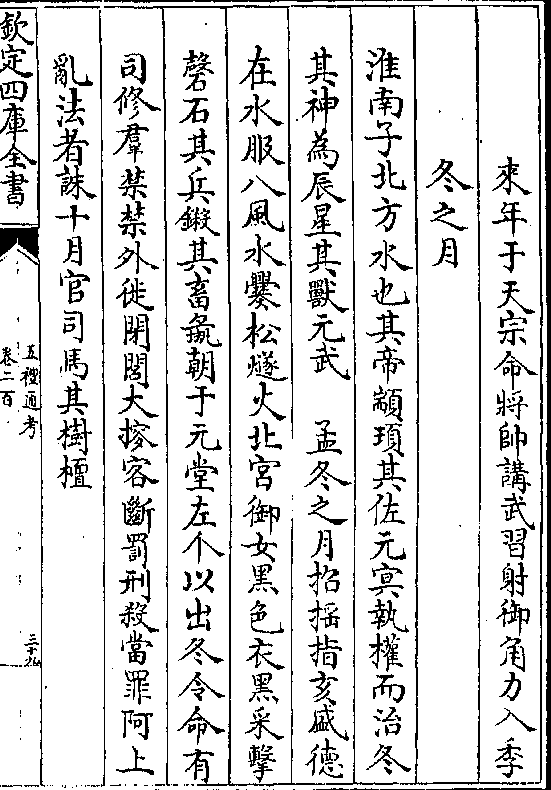 來年于天宗命將帥講武習射御角力入季
冬之月
淮南子北方水也其帝顓頊其佐元冥執權而治冬
其神為辰星其獸元武　孟冬之月招揺指亥盛德
在水服八風水爨松燧火北宫御女黒色衣黒采擊
磬石其兵鎩其畜彘朝于元堂左个以出冬令命有
司修羣禁禁外徙閉閭大搜客斷罰刑殺當罪阿上
亂法者誅十月官司馬其樹檀
欽定四庫全書
五禮通考
卷二百
三十九